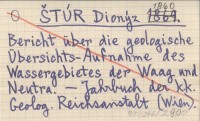 1860
ŠTÚR Dionýz 1869.
Bericht über die geologische
Übersichts-Aufnahme des
Wassergebietes der Waag und
Neutra. — Jahrbuch der k.k.
Geolog. Reichsanstalt (Wien).